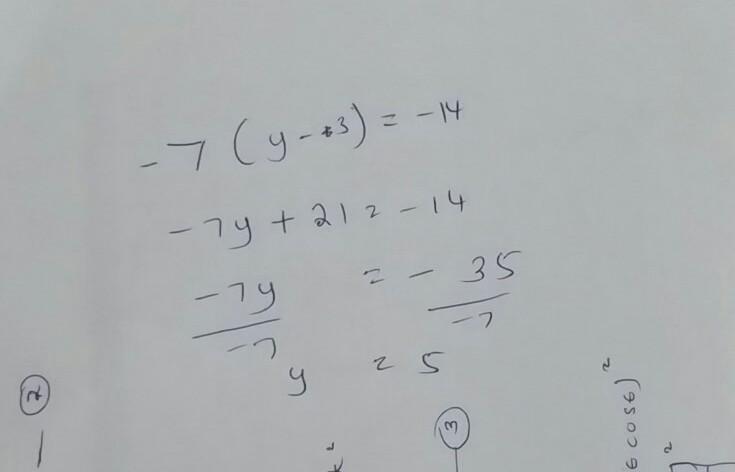 -7 (y - 3) = -14
-7y + 21 = -14
-7y = - 35
-7 -7
y = 5
2
3